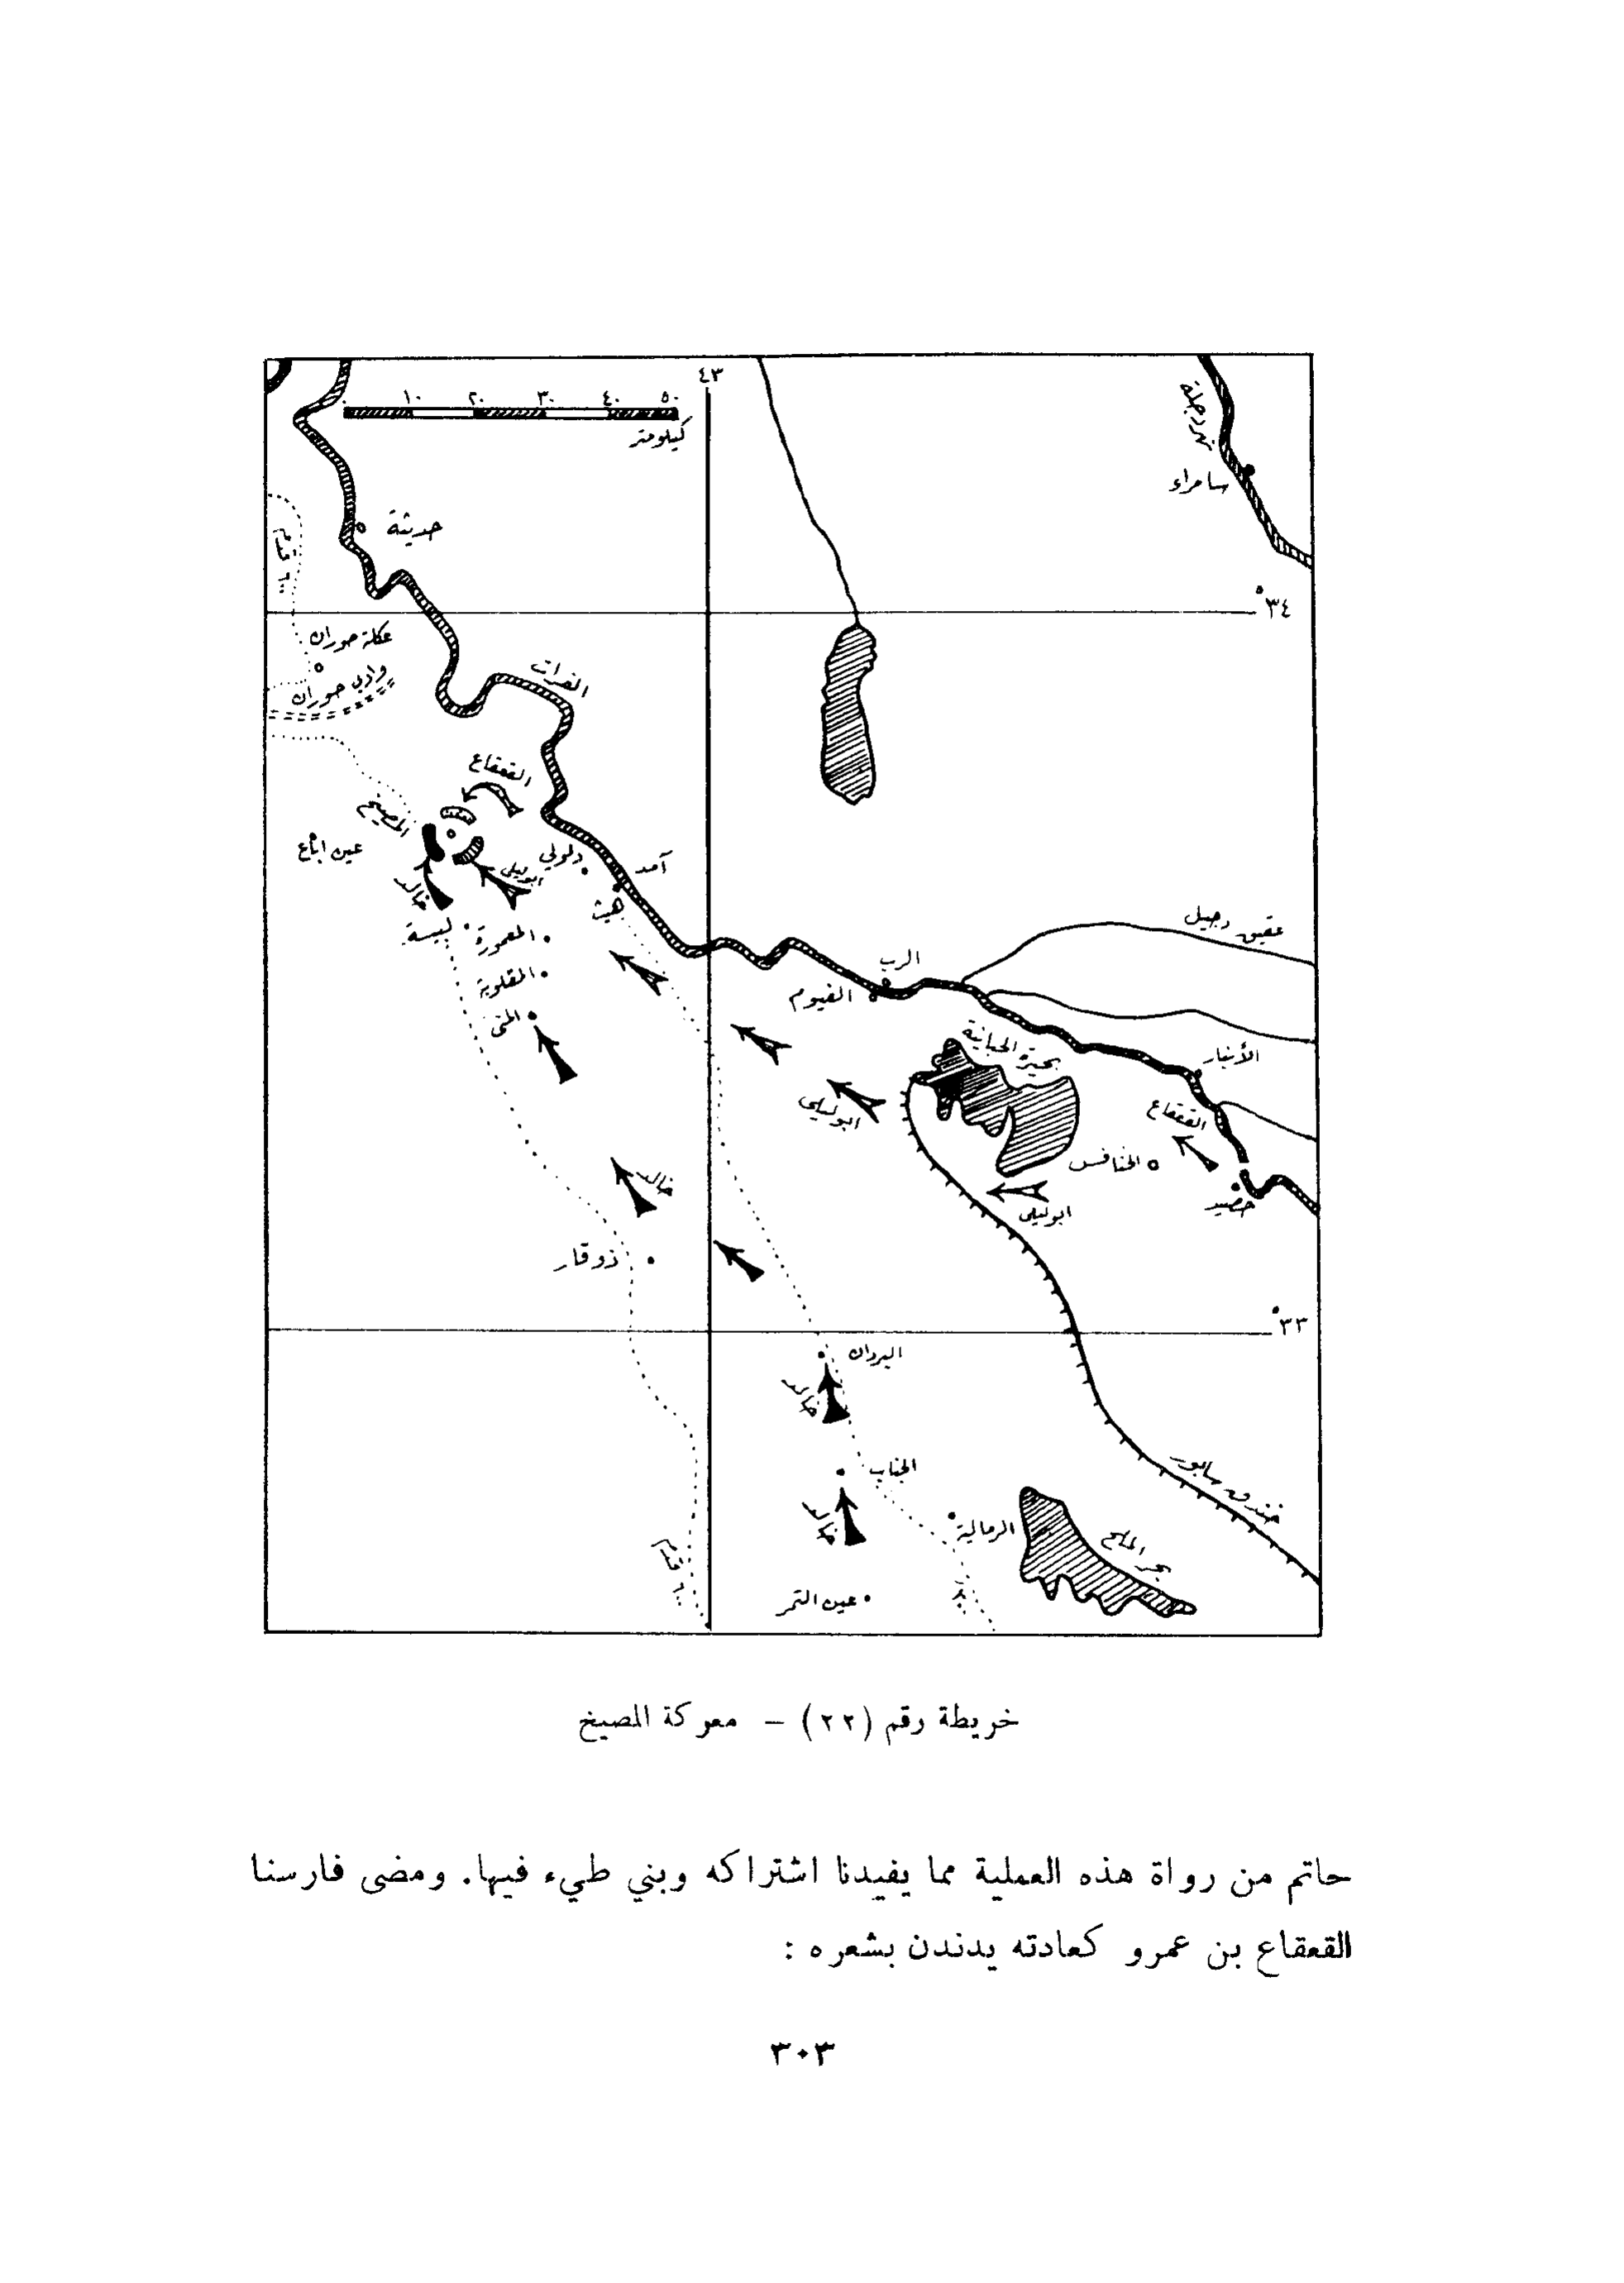 ٤٣
١٠ ٢٠ ٣٠ ٤٠ ٥٠
كيلومتر
نهر دجلة
سامراء
حديثة
٣٤°
عكلة حوران
وادي حوران
الفرات
القعقاع
المصيخ
عين اباغ
خالد
ابوليلى
دلولي
آمد
هيت
المعمورة
المقلوبة
عقيق دجيل
الرب
الفيوم
بحيرة الحبانية
الأنبار
القعقاع
ابوليلى
الخنافس
حصيد
ابوليلى
خالد
ذو قار
٣٣°
البردان
خالد
الجناب
خالد
خندق سابور
الرمالية
بحر الملح
عين التمر
خريطة رقم (٢٢) – معركة المصيخ
حاتم من رواة هذه العملية مما يفيدنا اشتراكه وبني طيء فيها. ومضى فارسنا
القعقاع بن عمرو كعادته يدندن بشعره :
٣٠٣